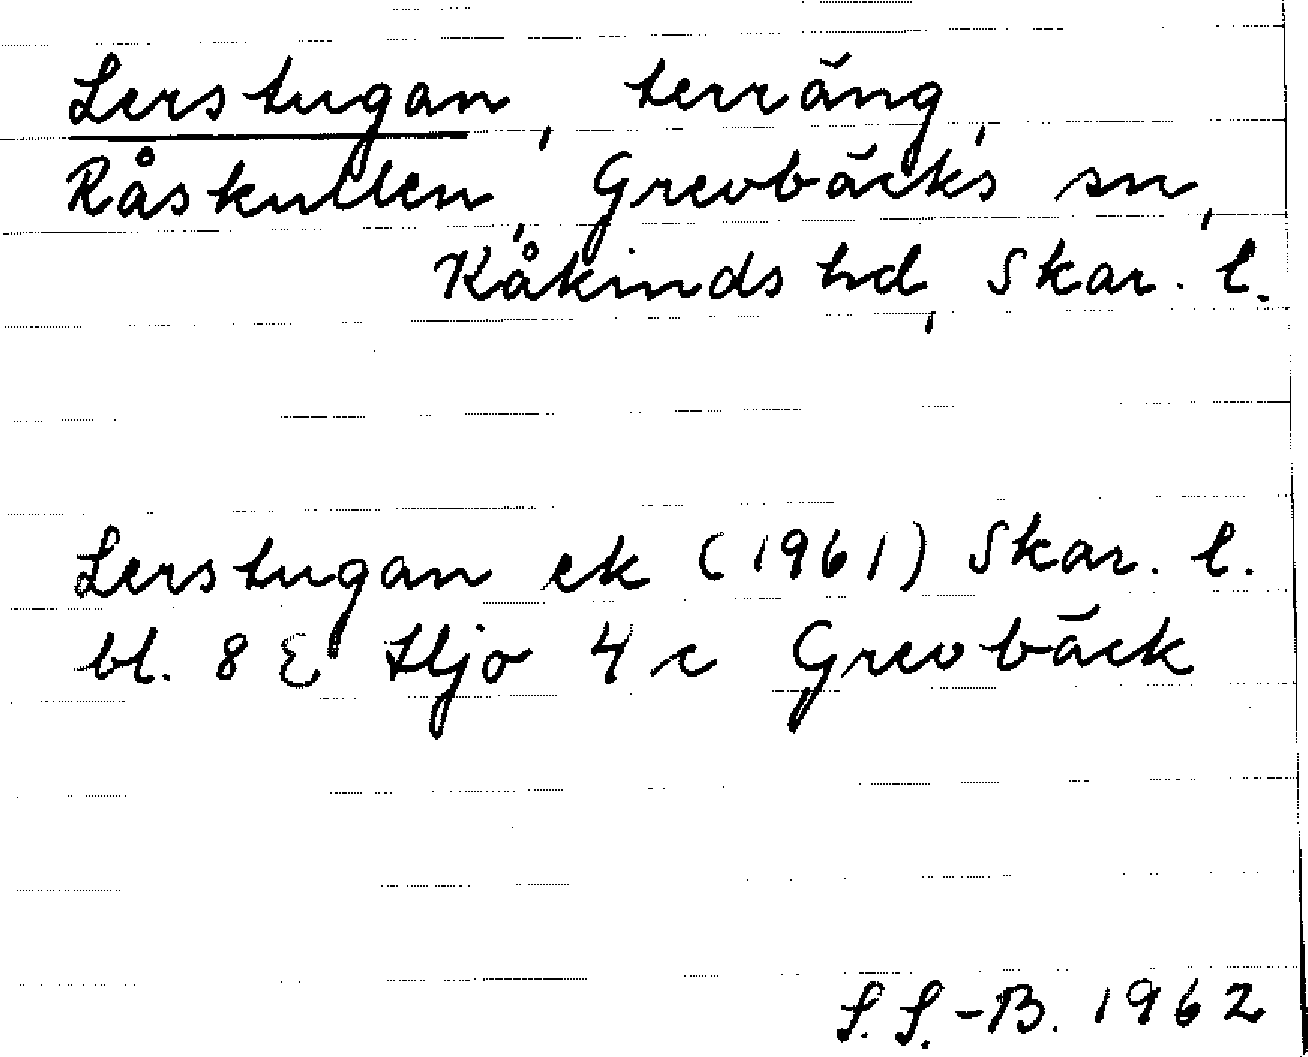 Lerstugan, terräng,
Råskullen, Grevbäcks sn,
Kåkinds hd, Skar. l.
Lerstugan ek (1961) Skar. l.
bl. 8 E Hjo 4 c Grevbäck
S. S.-B. 1962